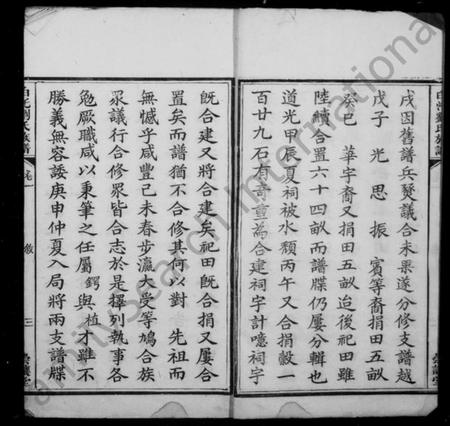 戌因舊譜兵燹議合未果遂分修支譜越
戊子 光 思 振 賓等裔捐田五畝
癸巳 華字裔又捐田五畝迨後祀田雖
陸續合置六十四畝而譜牒仍屢分輯也
道光甲辰夏祠被水頹丙午又合捐穀一
百廿九石有奇重為合建祠宇計噫祠宇
既合建又將合建矣祀田既合捐又屢合
置矣而譜猶不合修其何以對 先祖而
無憾乎咸豐己未春步瀛大受等鳩合族
眾議行合修眾皆合志於是擇列執事各
勉厥職咸以秉筆之任屬 鍔與植才雖不
勝義無容諉庚申仲夏入局將兩支譜牒
劉氏族譜
FamilySearch International